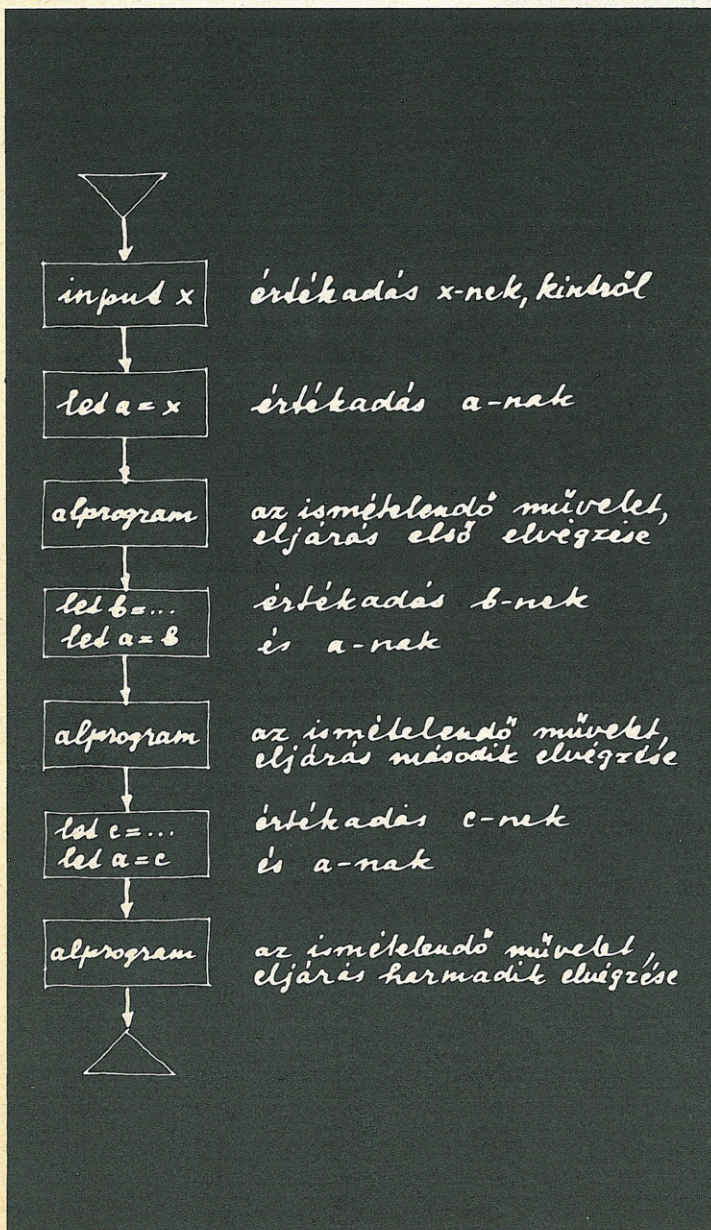 input x
értékadás x-nek, kintről
let a = x
értékadás a-nak
alprogram
az ismételendő művelet,
eljárás első elvégzése
let b = ...
let a = b
értékadás b-nek
és a-nak
alprogram
az ismételendő művelet,
eljárás második elvégzése
let c = ...
let a = c
értékadás c-nek
és a-nak
alprogram
az ismételendő művelet,
eljárás harmadik elvégzése